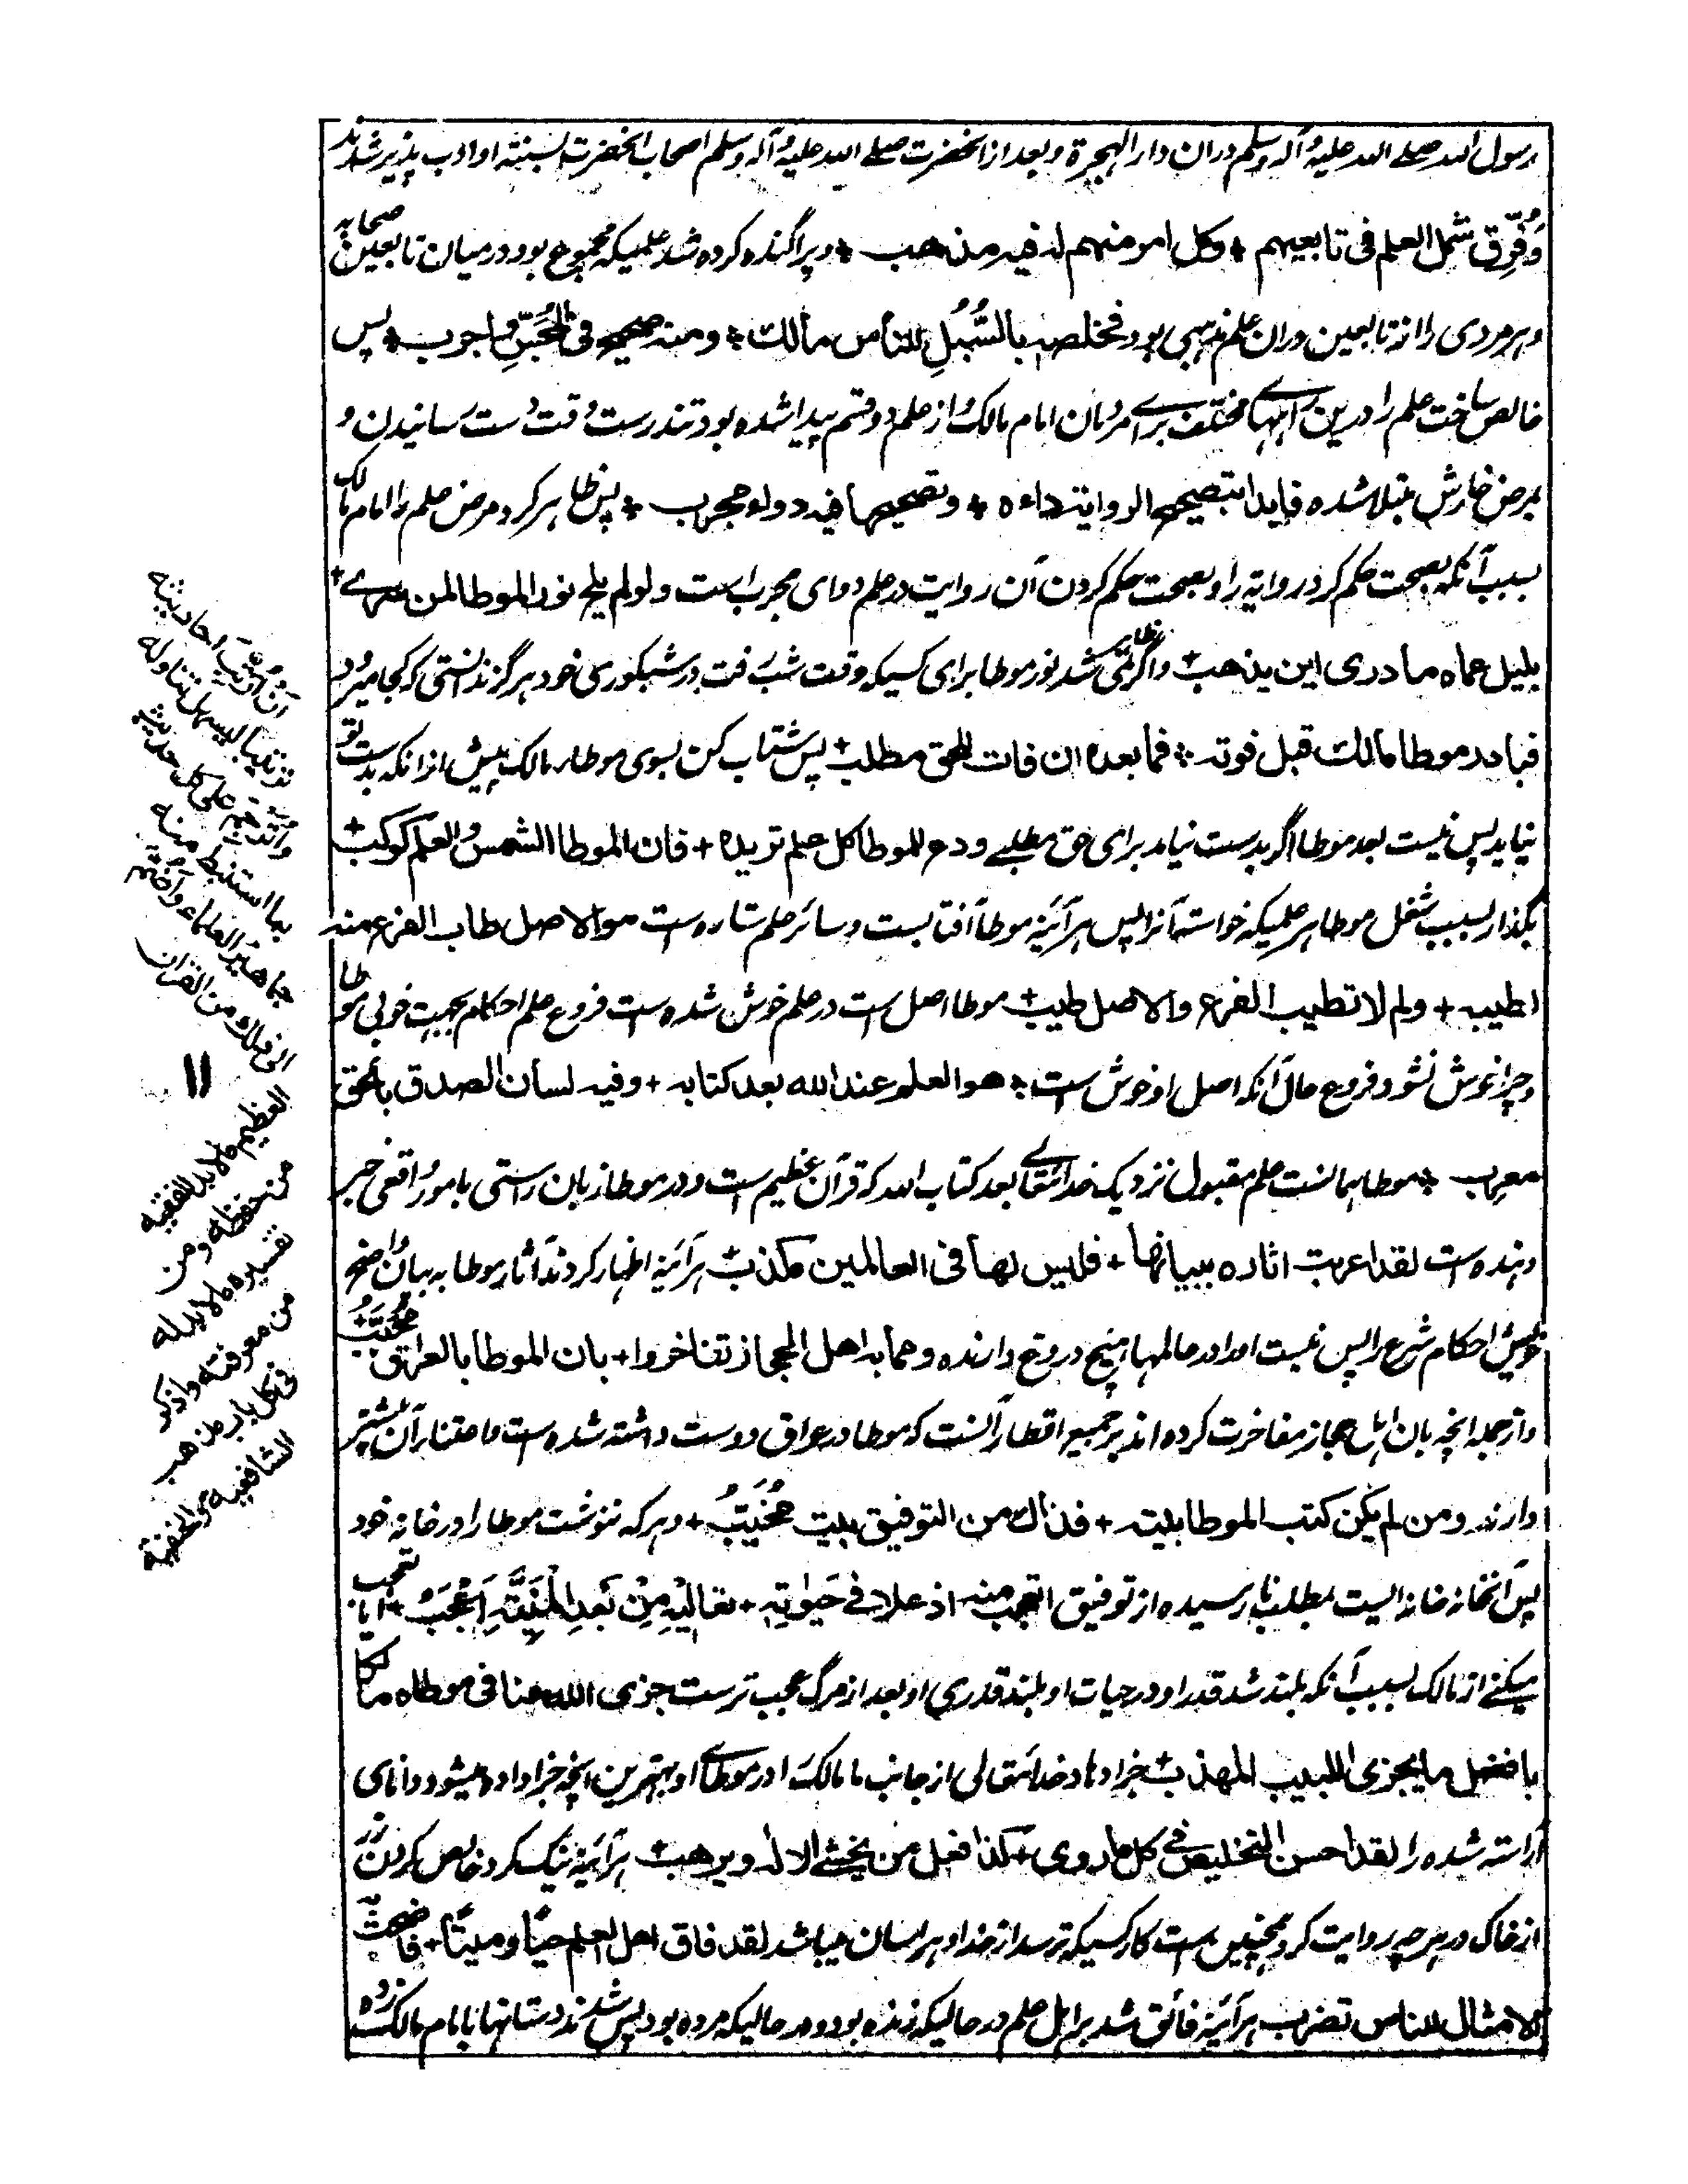 رسول الله صلے الله علیه وآله وسلم دران دار الهجرة وبعد از آنحضرت صلے الله علیه وآله وسلم اصحاب آنحضرت بسنته او ادب پذیر شدند
وفُرِّق شمل العلم فی تابعیهم + وکل امر منهم له فیه مذهب + و پراگنده کرده شد علمیکه مجموع بود درمیان تابعین صحابه
و هر مردی را از تابعین دران علم مذهبی بود فخلصه بالسُّبُلِ للناس مالك + ومنه صحیح فی المَجَسِّ واجرب + پس
خالص ساخت علم را درین راههاے مختلف براے مردمان امام مالک و از علم دو قسم پیدا شده بود تندرست وقت دست رسانیدن و
بمرض خارش مبتلا شده فابدا بتصحیح الروایة داءه + وتصحیحها فیه دواء مجرب + پس ظاهر کرد مرض علم را امام مالک
بسبب آنکه بصحت حکم کرد روایة را و بصحت حکم کردن آن روایت در علم دوای مجرب است ولو لم یلح نور الموطا لمن سرے +
بلیل عماه ما دری این یذهب + و اگر ظاهر نمی شد نور موطا برای کسیکه وقت شب رفت در شبکوری خود هرگز ندانستی که کجا میرود
فبادر موطا مالك قبل فوته + فما بعده ان فات للحق مطلب + پس شتاب کن بسوی موطاء مالک پیش از انکه بدست تو
نیاید پس نیست بعد موطا اگر بدست نیاید برای حق مطلبے ودع للموطا کل علم تریده + فان الموطا الشمس والعلم کوکب +
بگذار بسبب شغل موطا هر علمیکه خواسته آنرا پس هرآئینه موطا آفتابست و سائر علم ستاره است هو الاصل طاب الفرع منه
لطیبه + ولم لا تطیب الفرع والاصل طیب + موطا اصل است در علم خوش شده است فروع علم احکام بجهت خوبی موطا
و چرا خوش نشود فروع حال آنکه اصل او خوش است + هو العلم عند الله بعد کتابه + وفیه لسان الصدق بالحق
معرب + موطا همانست علم مقبول نزدیک خدائتعالے بعد کتاب الله که قرآن عظیم است و در موطا زبان راستی بامور واقعی خبر
دهنده است لقد اعربت اثاره ببیانها + فلیس لها فی العالمین مکذب + هرآئینه اظهار کردند آثار موطا به بیان واضح
خویش احکام شرع را پس نیست او را در عالمها هیچ دروغ دارنده ومما به اهل الحجاز تفاخروا + بان الموطا بالعراق مُحَبَّبُ +
و از جمله انچه بان اهل حجاز مفاخرت کرده اند بر جمیع اقطار آنست که موطا در عراق دوست داشته شده است با اعتناء آن بیشتر
دارند ومن لم یکن کتب الموطا ببیته + فذاك من التوفیق بیت مُخَیَّبُ + و هر که ننوشت موطا را در خانه خود
پس آنخانه خانه ایست بمطلب نارسیده از توفیق اتعجب منه اذ علا فے حیوٰته + تعالیه من بعد المنیة اعجب + آیا تعجب
میکنے از مالک بسبب آنکه بلند شد قدر او در حیات او بلند قدری او بعد از مرگ عجب ترست جزی الله عنا فی موطاه مالكا
بافضل ما یجزی اللبیب المهذب + جزا دهاد خدائتعالی از جانب ما مالک را در موطاے او بهترین انچه جزا داده میشود دانای
آراسته شده را لقد احسن التخلیص فے کل ما روی + کذا فعل من یخشی الاله ویرهب + هرآئینه نیک کرد خالص کردن زر
از خاک در هرچه روایت کرد همچنین است کار کسیکه ترسد از خدا و هراسان میباشد لقد فاق اهل العلم حیاً ومیتاً + فاضحت
الامثال للناس تضرب هرآئینه فائق شد بر اهل علم در حالیکه زنده بود و در حالیکه مرده بود پس شدند داستانها بامام مالک زده
ان اُرَتِّبَ احادیثه
ترتیبا لیسهل تناوله
واُتَرجِم علی کل حدیث
بما استنبط منه
جماهیر العلماء واضم
الی ذلك من القران
۱۱
العظیم ما لا بد للفقیه
من حفظه ومن
تفسیره ما لا بد له
من معرفته واذکر
فی کل باب مذهب
الشافعیة والحنفیة